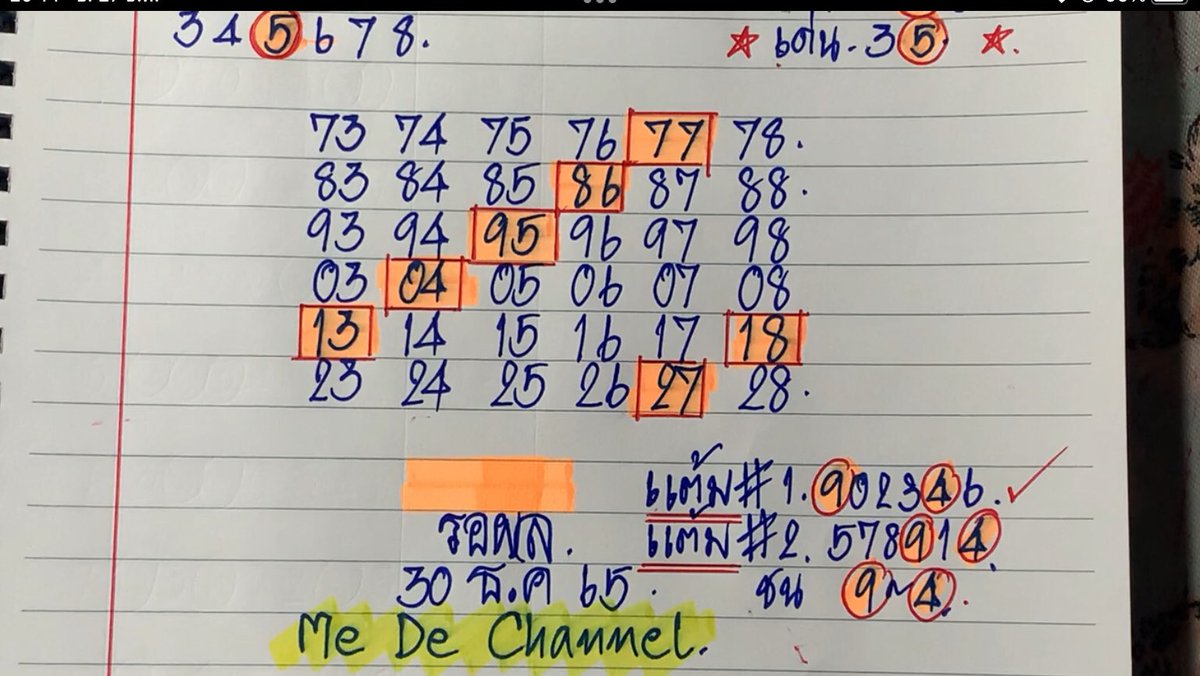 3 4 5 6 7 8.
เด่น - 3 5
73 74 75 76 77 78.
83 84 85 86 87 88.
93 94 95 96 97 98
03 04 05 06 07 08
13 14 15 16 17 18
23 24 25 26 27 28.
แต้ม # 1. 902346.
รอผล.
แต้ม #2. 578914.
30 ธ.ค 65.
ชน 9~4.
Me De Channel.